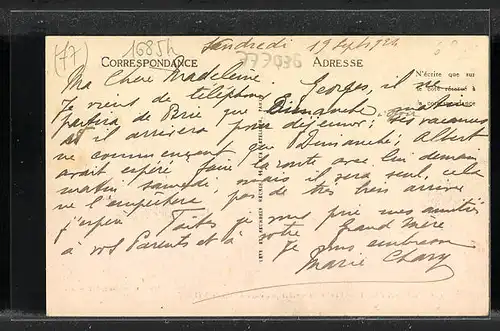 (77) 16854 777036
Vendredi 19 Sept 1924
CORRESPONDANCE ADRESSE
N'écrite que sur
le côté réservé à
la correspondance
Ma Chère Madeleine.
Je viens de téléphoner Georges, il ne
partira de Brie que Dimanche matin
et il arrivera pour déjeuner; ses vacances
ne commençant que Dimanche, Albert
avait espéré faire la route avec lui demain
matin samedi, mais il sera seul, cela
ne l'empêchera pas de très bien arriver
j'espère. Faites je vous prie mes amitiés
à vos Parents et à votre Grand Mère
Je vous embrasse
Marie Chary